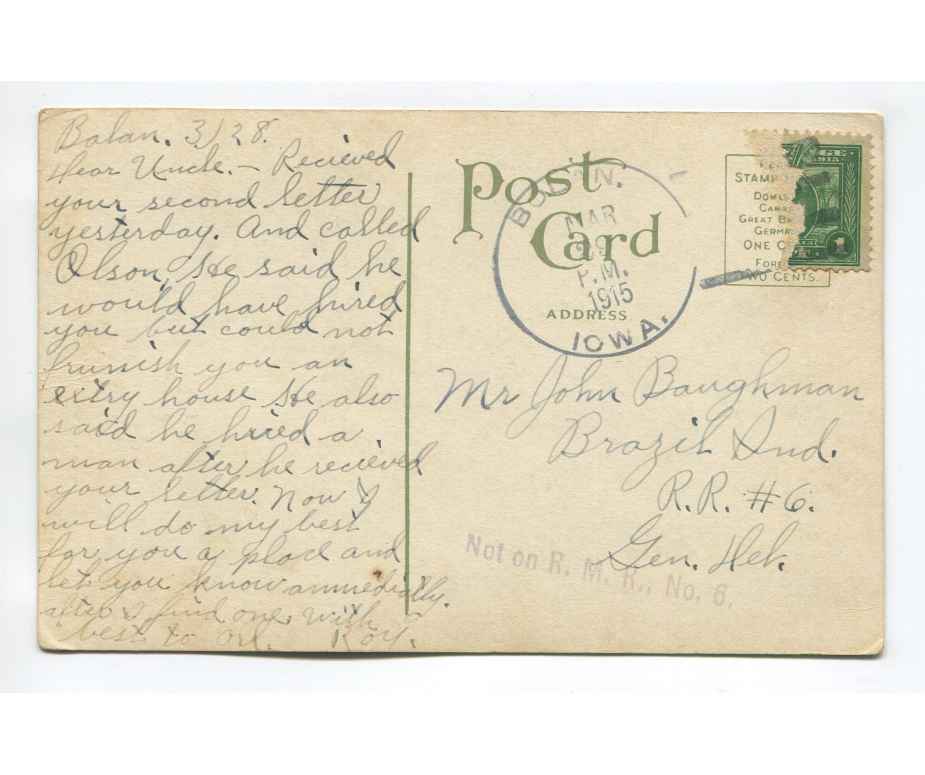 Bolan, 3/28.
Dear Uncle. - Recieved
your second letter
yesterday. And called
Olson, He said he
would have hired
you but could not
furnish you an
extry house He also
said he hired a
man after he recieved
your letter. Now I
will do my best
for you a place and
let you know
after I find one, with
best to all. Roy.
Post
Card
ADDRESS
BOLAN.
MAR
29
P.M.
1915
IOWA.
STAMP
GREAT
ONE
TWO CENTS.
1
Mr John Baughman
Brazil Ind.
R.R. #6.
Gen. Del.
Not on R. M. R., No. 6.